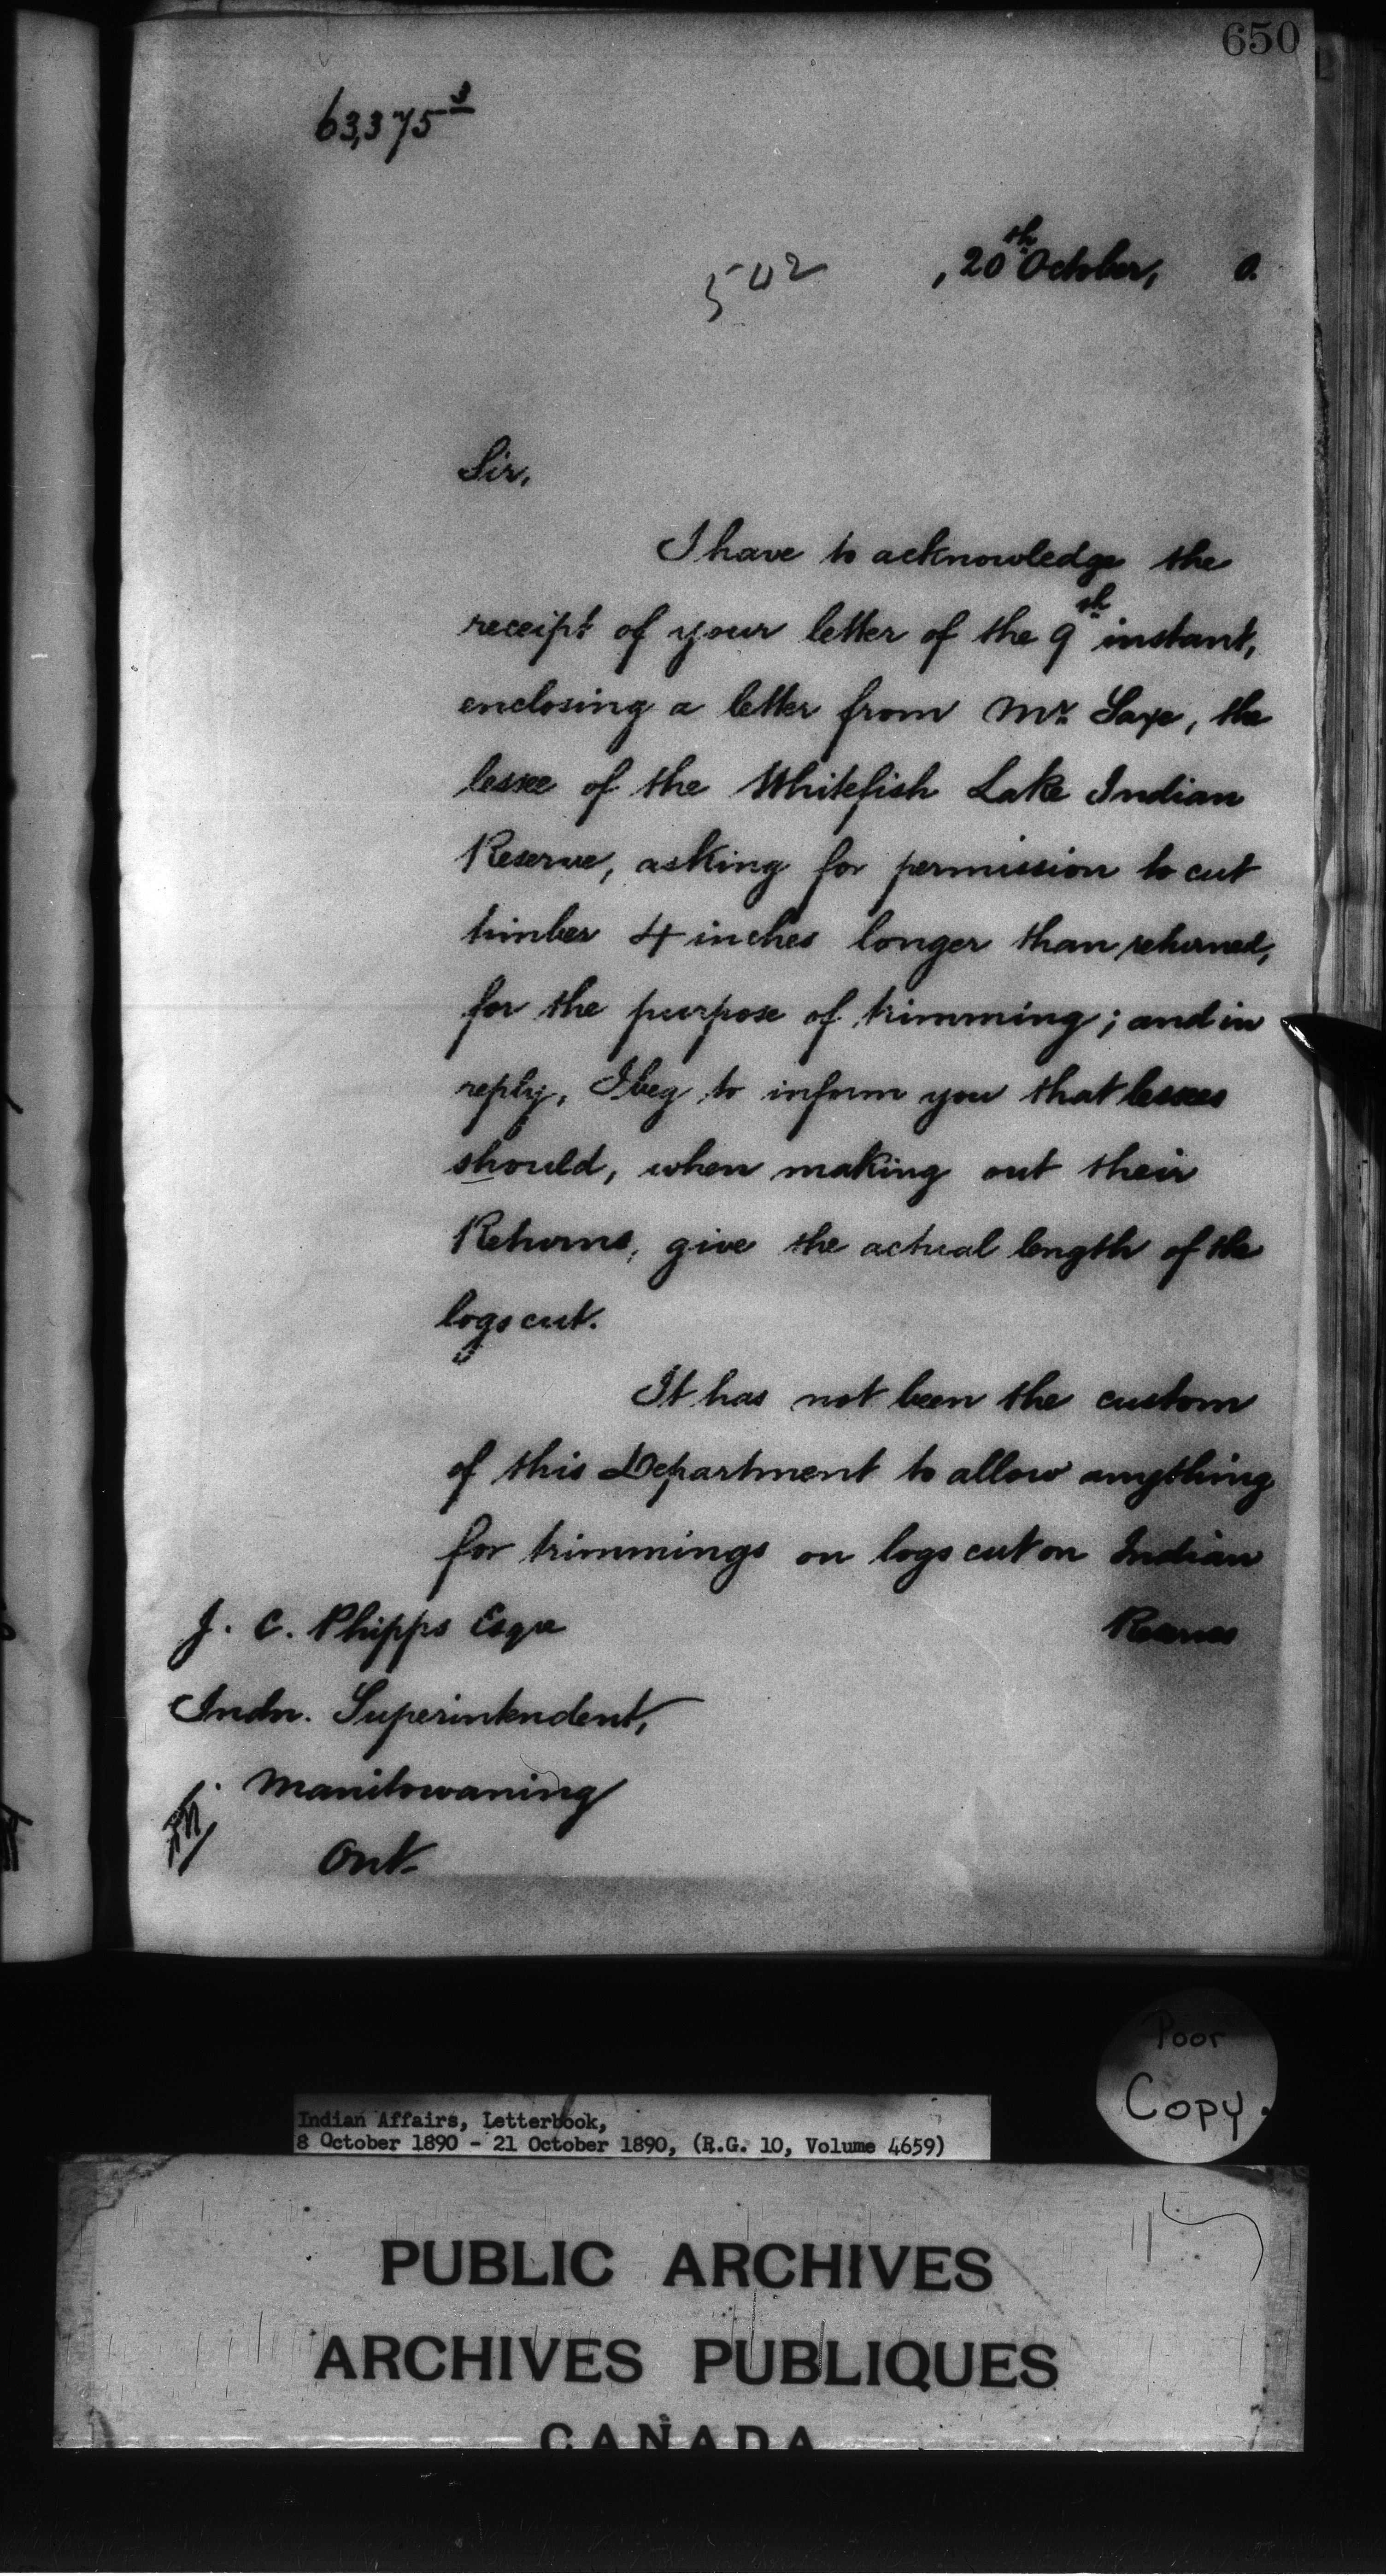 650
63,375³
542 , 20th October, 0.
Sir,
I have to acknowledge the
receipt of your letter of the 9th instant,
enclosing a letter from Mr. Saxe, the
lessee of the Whitefish Lake Indian
Reserve, asking for permission to cut
timber 4 inches longer than returned,
for the purpose of trimming; and in
reply, I beg to inform you that lessees
should, when making out their
Returns, give the actual length of the
logs cut.
It has not been the custom
of this Department to allow anything
for trimmings on logs cut on Indian
Reserves
J. C. Phipps Esqre
Indn. Superintendent,
Manitowaning
Ont.
Poor
Copy.
Indian Affairs, Letterbook,
8 October 1890 - 21 October 1890, (R.G. 10, Volume 4659)
PUBLIC ARCHIVES
ARCHIVES PUBLIQUES
CANADA